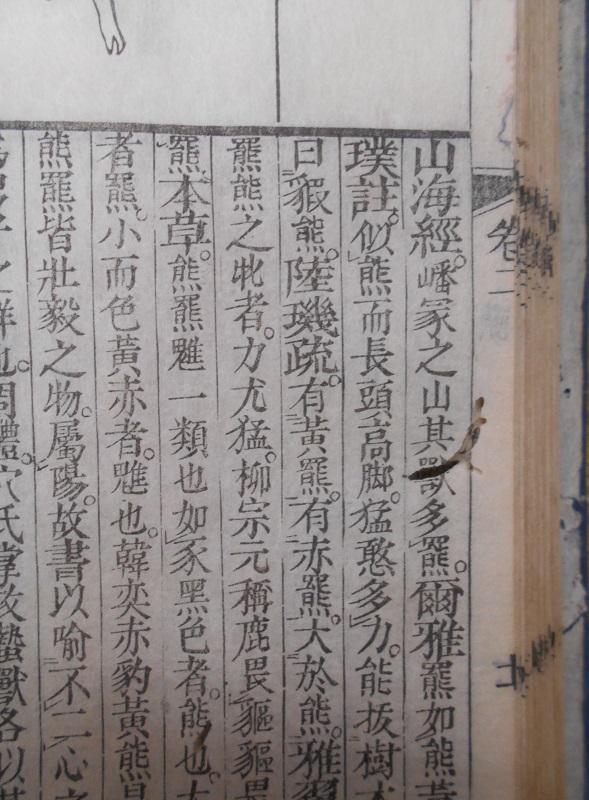 卷二
山海經。嶓冢之山其獸多羆。爾雅羆如熊黃
璞註。似熊而長頭高脚。猛憨多力。能拔樹木
曰貑熊。陸璣疏。有黃羆。有赤羆。大於熊。雅翼
羆熊之牝者。力尤猛。柳宗元稱鹿畏貙貙畏
羆本草。熊羆魋一類也如豕黑色者。熊也。大
者羆。小而色黃赤者。魋也。韓奕赤豹黃熊是
熊羆皆壯毅之物。屬陽。故書以喻不二心之
之祥也。周禮。穴氏掌攻蟄獸各以其